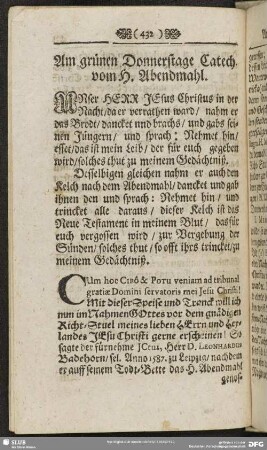 ( 432 )
Am grünen Donnerstage Catech.
vom H. Abendmahl.
UNser HERR JEsus Christus in der
Nacht/ da er verrathen ward/ nahm er
das Brodt/ dancket und brachs/ und gabs sei-
nen Jüngern/ und sprach: Nehmet hin/
esset/ das ist mein Leib/ der für euch gegeben
wird/ solches thut zu meinem Gedächtniß.
Desselbigen gleichen nahm er auch den
Kelch nach dem Abendmahl/ dancket und gab
ihnen den und sprach: Nehmet hin/ und
trincket alle daraus/ dieser Kelch ist das
Neue Testament in meinem Blut/ das für
euch vergossen wird/ zur Vergebung der
Sünden/ solches thut/ so offt ihrs trincket/ zu
meinem Gedächtniß.
CUm hoc Cibô & Potu veniam ad tribunal
gratiæ Domini servatoris mei Jesu Christi!
Mit dieser Speise und Tranck will ich
nun im Nahmen GOttes vor dem gnädigen
Richt-Stuel meines lieben HErrn und Hey-
landes JEsu Christi gerne erscheinen! So
sagte der fürnehme JCtus, Herr D. LEONHARDUS
Badehorn/ sel. Anno 1587. zu Leipzig/ nachdem
er auff seinem Todt-Bette das H. Abendmahl
genos-
SLUB
DFG